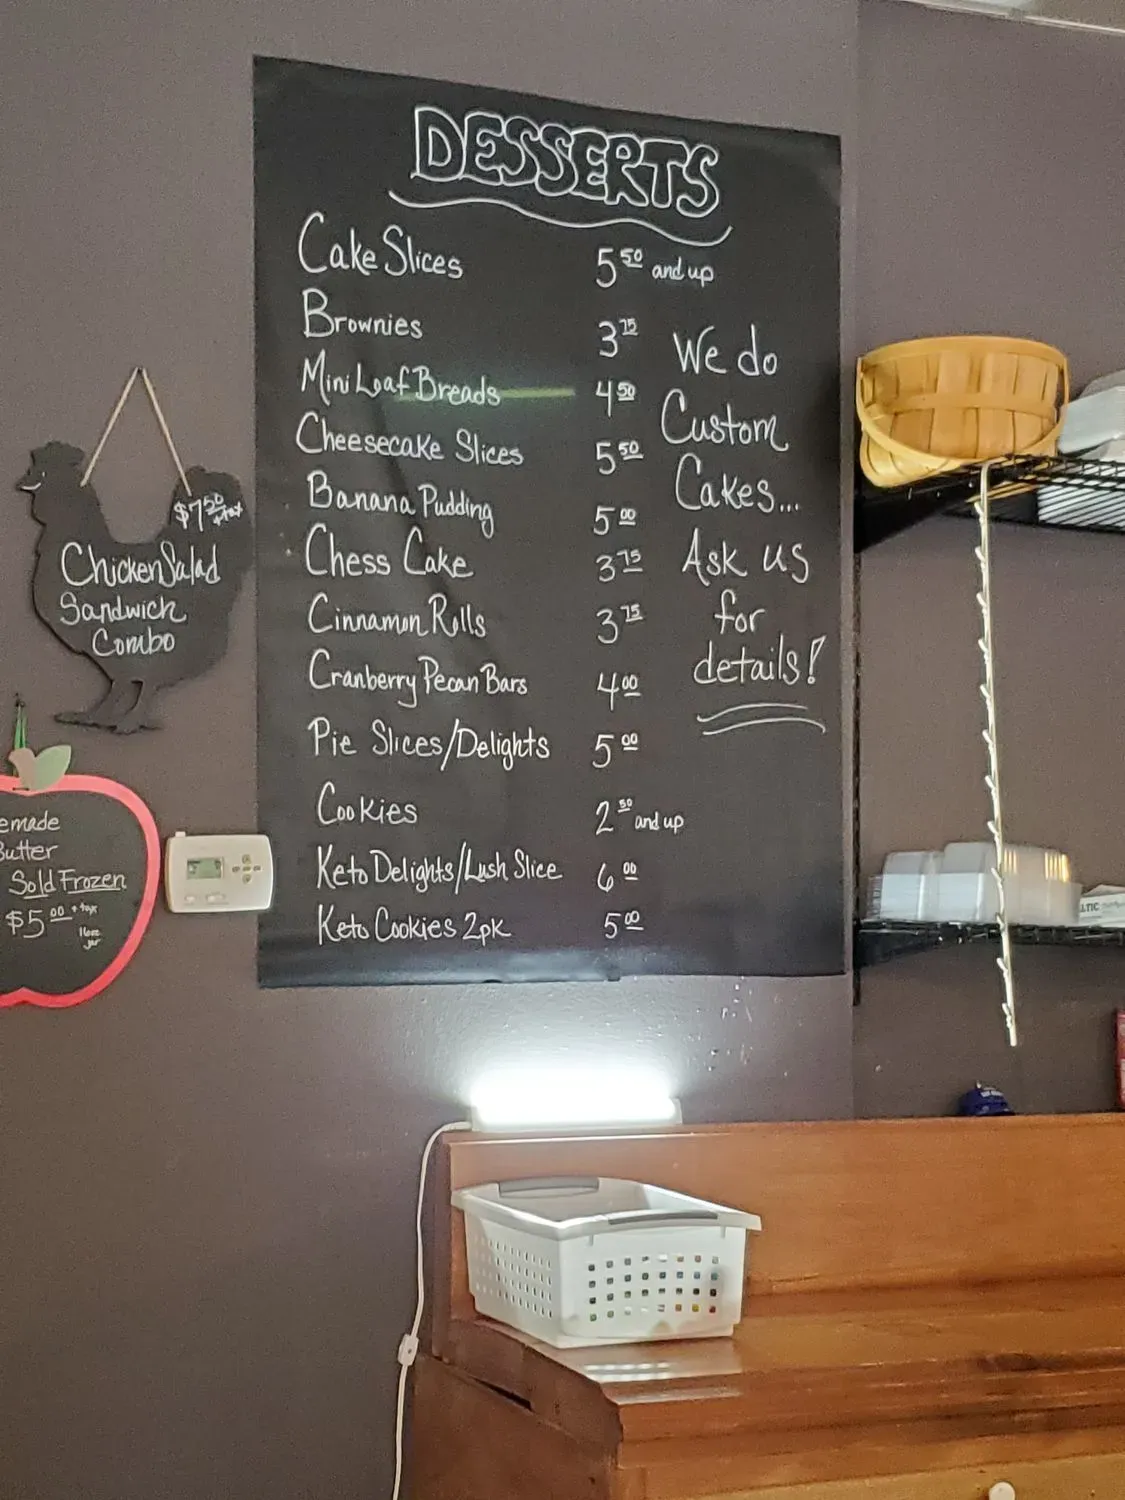 DESSERTS
Cake Slices 5 50 and up
Brownies 3 75
Mini Loaf Breads 4 50
Cheesecake Slices 5 50
Banana Pudding 5 00
Chess Cake 3 75
Cinnamon Rolls 3 75
Cranberry Pecan Bars 4 00
Pie Slices/Delights 5 00
Cookies 2 50 and up
Keto Delights/Lush Slice 6 00
Keto Cookies 2pk 5 00
We do
Custom
Cakes...
Ask us
for
details!
$7 50 + tax
Chicken Salad
Sandwich
Combo
emade
Butter
Sold Frozen
$5 00 + tax
16oz
jar